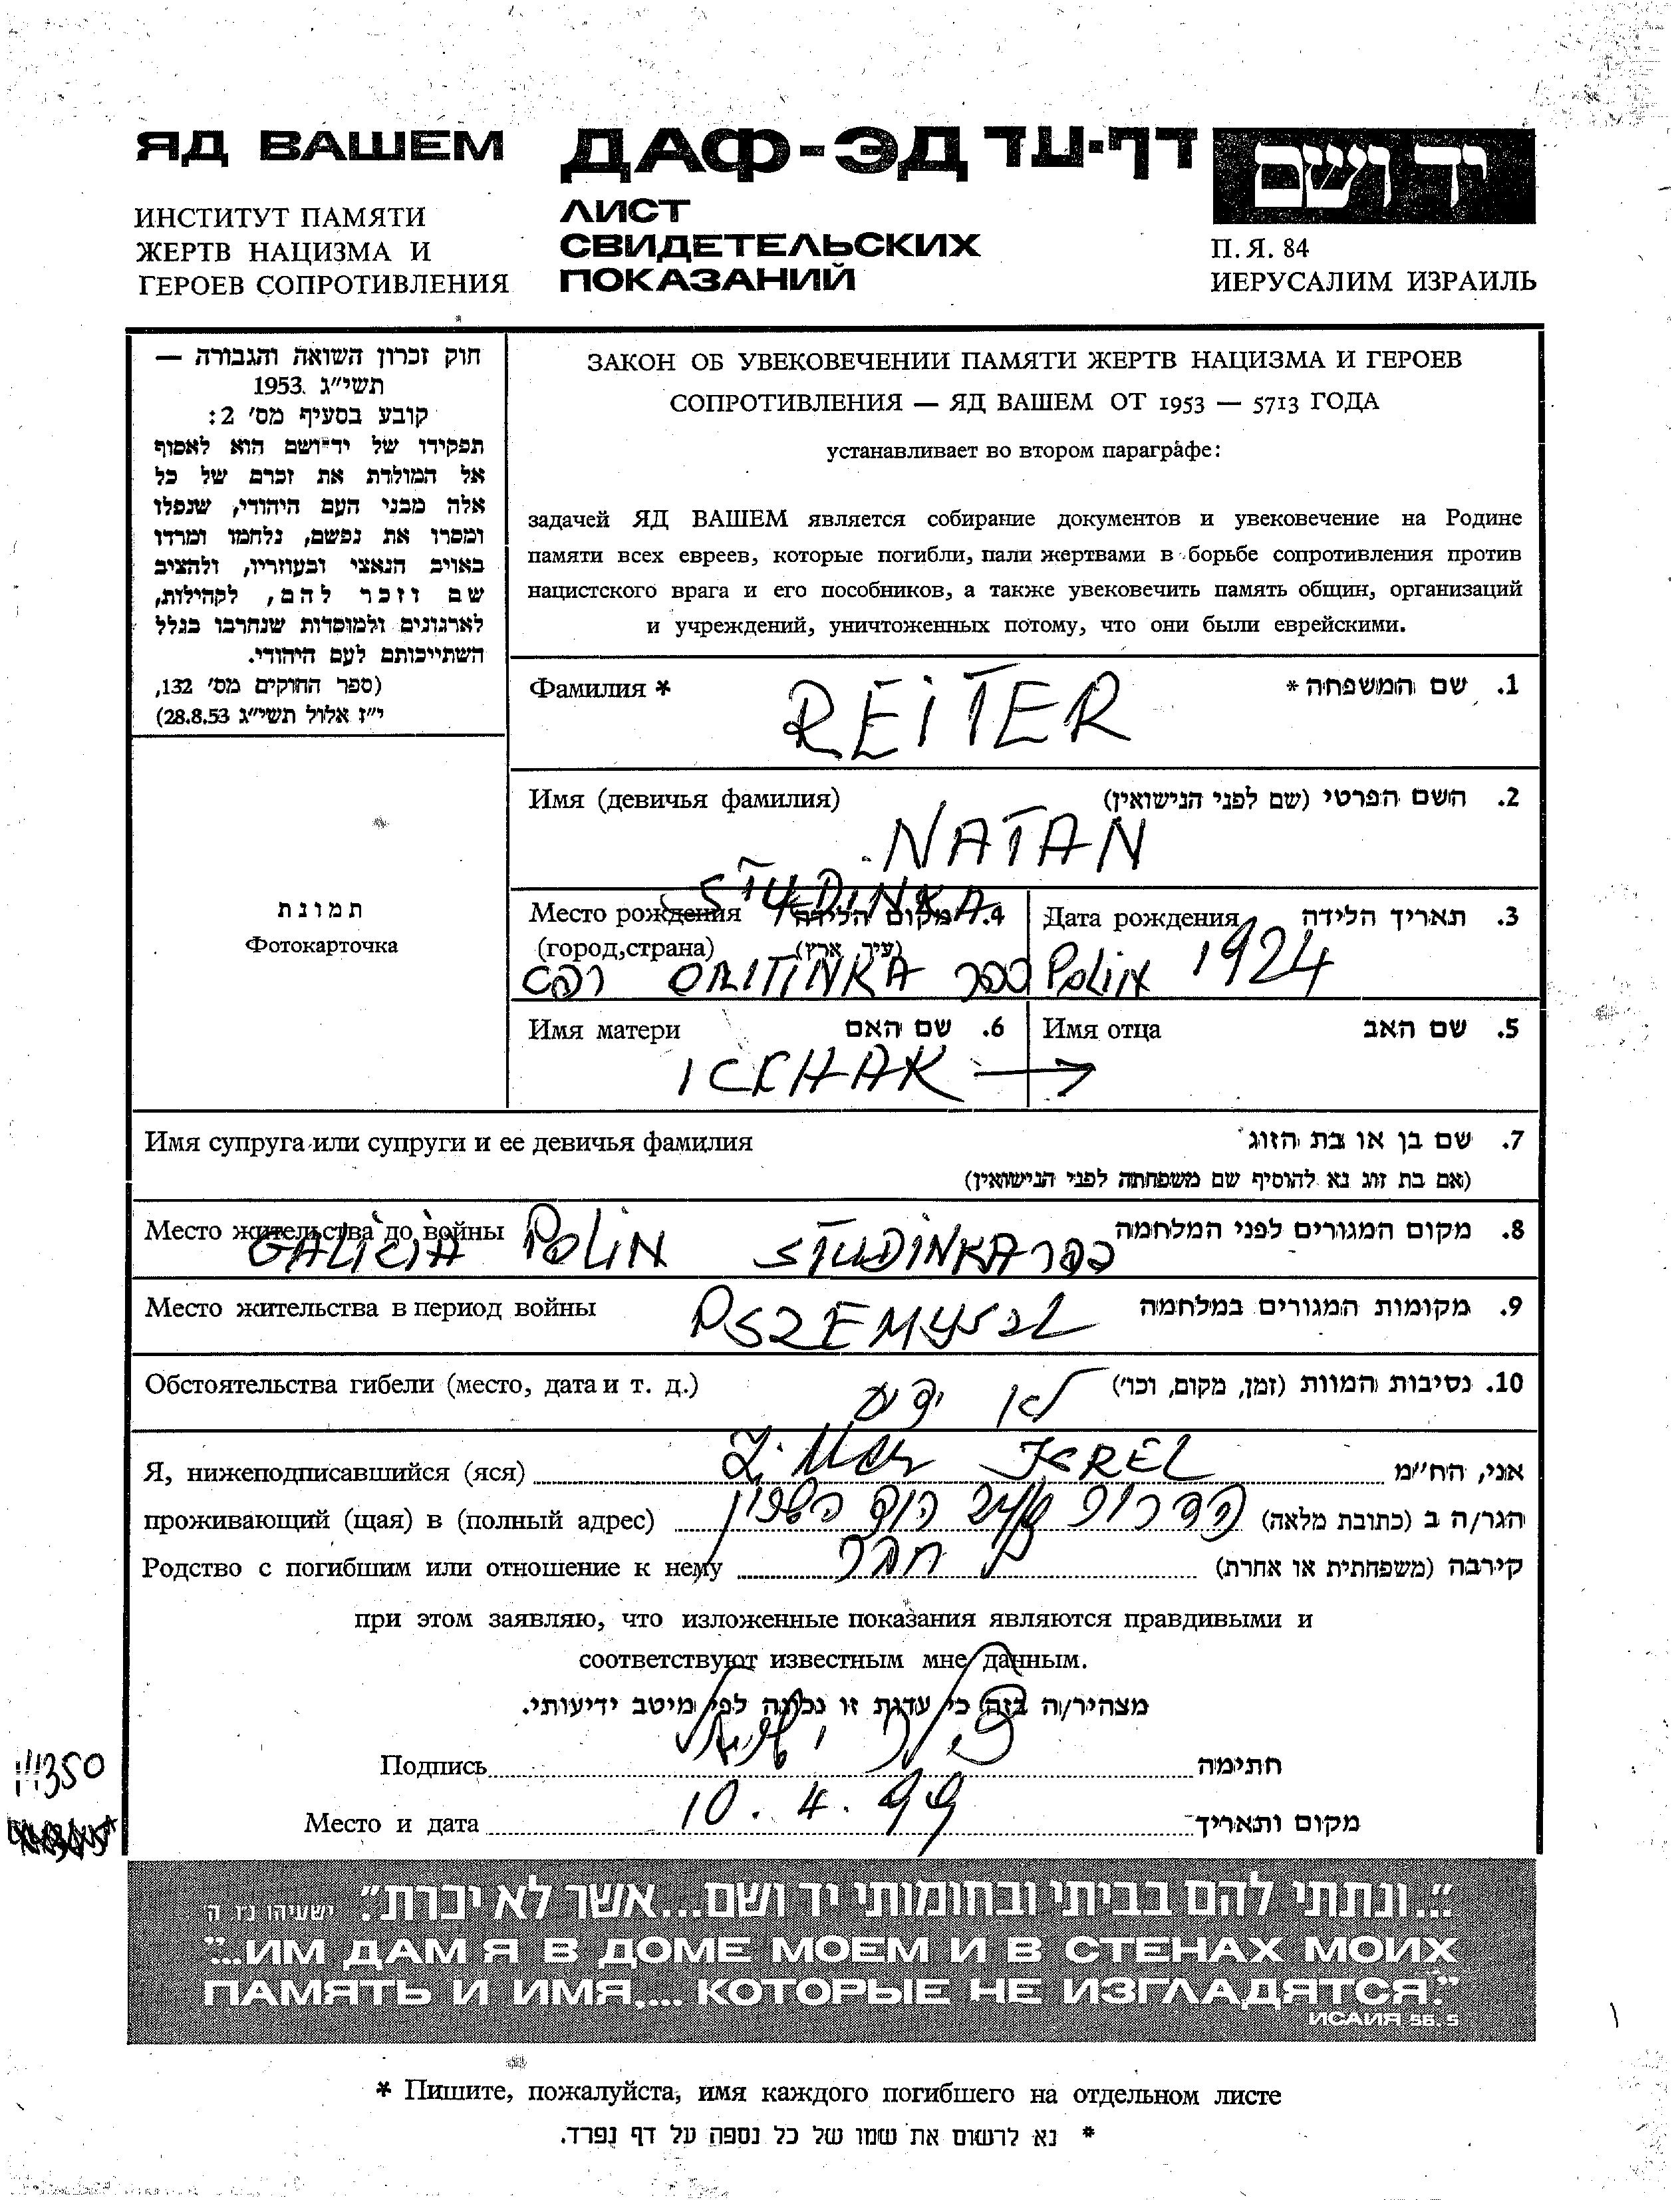 ЯД ВАШЕМ
ИНСТИТУТ ПАМЯТИ
ЖЕРТВ НАЦИЗМА И
ГЕРОЕВ СОПРОТИВЛЕНИЯ
ДАФ-ЭД דף-עד
ЛИСТ
СВИДЕТЕЛЬСКИХ
ПОКАЗАНИЙ
יד ושם
П. Я. 84
ИЕРУСАЛИМ ИЗРАИЛЬ
חוק זכרון השואה והגבורה —
תשי״ג 1953.
קובע בסעיף מס׳ 2:
תפקידו של יד־ושם הוא לאסוף
אל המולדת את זכרם של כל
אלה מבני העם היהודי, שנפלו
ומסרו את נפשם, נלחמו ומרדו
באויב הנאצי ובעוזריו, ולהציב
שם וזכר להם, לקהילות,
לארגונים ולמוסדות שנחרבו בגלל
השתייכותם לעם היהודי.
(ספר החוקים מס׳ 132,
י״ז אלול תשי״ג 28.8.53)
ЗАКОН ОБ УВЕКОВЕЧЕНИИ ПАМЯТИ ЖЕРТВ НАЦИЗМА И ГЕРОЕВ
СОПРОТИВЛЕНИЯ — ЯД ВАШЕМ ОТ 1953 — 5713 ГОДА
устанавливает во втором параграфе:
задачей ЯД ВАШЕМ является собирание документов и увековечение на Родине
памяти всех евреев, которые погибли, пали жертвами в борьбе сопротивления против
нацистского врага и его пособников, а также увековечить память общин, организаций
и учреждений, уничтоженных потому, что они были еврейскими.
Фамилия * REITER 1. שם המשפחה *
Имя (девичья фамилия) 2. השם הפרטי (שם לפני הנישואין)
NATAN
STUDINKA
Место рождения 4. מקום הלידה
(город,страна) (עיר, ארץ)
כפר Polin
Дата рождения 3. תאריך הלידה
1924
Имя матери 6. שם האם
Имя отца 5. שם האב
ICKHAK →
Имя супруга или супруги и ее девичья фамилия 7. שם בן או בת הזוג
(אם בת זוג נא להוסיף שם משפחתה לפני הנישואין)
Место жительства до войны 8. מקום המגורים לפני המלחמה
GALICIA Polin STUDINKA כפר
Место жительства в период войны PSZEMYSZL 9. מקומות המגורים במלחמה
Обстоятельства гибели (место, дата и т. д.) לא ידוע 10. נסיבות המוות (זמן, מקום, וכו׳)
Я, нижеподписавшийся (яся) ISREL אני, הח״מ
проживающий (щая) в (полный адрес) הוד השרון הגר/ה ב (כתובת מלאה)
Родство с погибшим или отношение к нему חבר קירבה (משפחתית או אחרת)
при этом заявляю, что изложенные показания являются правдивыми и
соответствуют известным мне данным.
מצהיר/ה בזה כי עדות זו נכונה לפי מיטב ידיעותי.
Подпись ישראל חתימה
Место и дата 10. 4. 99 מקום ותאריך
350
״...ונתתי להם בביתי ובחומותי יד ושם...אשר לא יכרת״. ישעיהו נ״ו ה׳
"...ИМ ДАМ Я В ДОМЕ МОЕМ И В СТЕНАХ МОИХ
ПАМЯТЬ И ИМЯ,... КОТОРЫЕ НЕ ИЗГЛАДЯТСЯ."
ИСАИЯ 56. 5
* Пишите, пожалуйста, имя каждого погибшего на отдельном листе
* נא לרשום את שמו של כל נספה על דף נפרד.